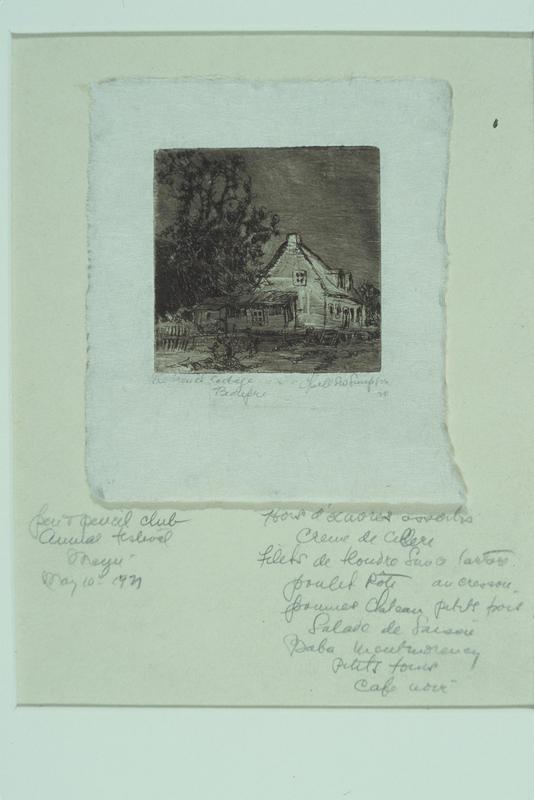 Beaupré
Pen & pencil club
Annual festival
Menu
May 10 - 1921
Hors d'œuvres assortis
Creme de Celleri
Filets de Sauce tartare
poulet Rôti au cresson
pommes Chateau petits pois
Salade de Saison
Baba Montmorency
petits fours
Cafe noir